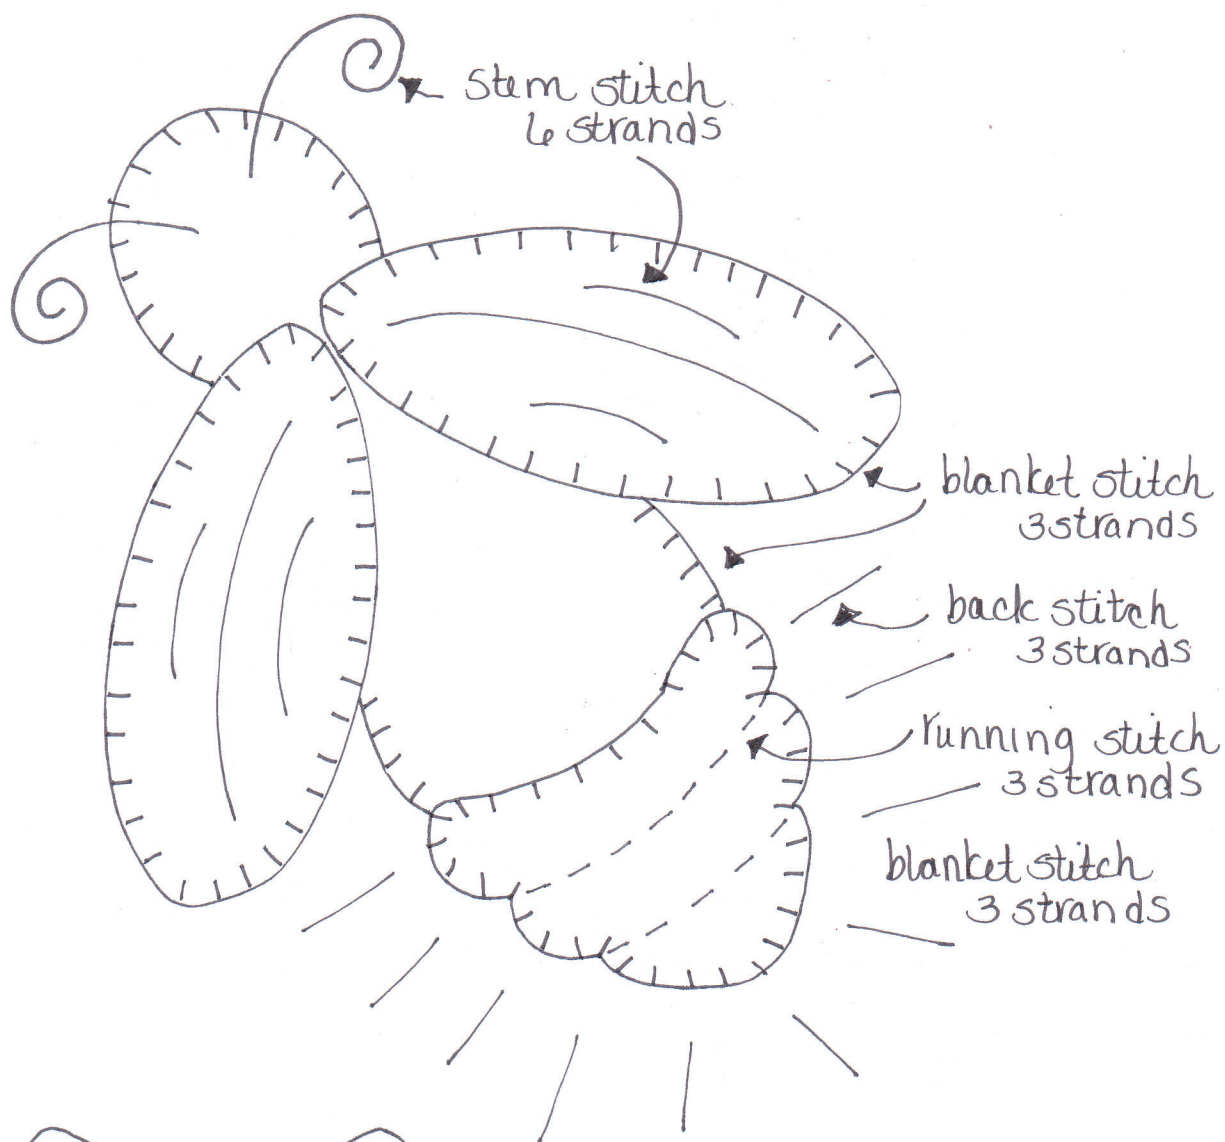 stem stitch
6 strands
blanket stitch
3 strands
back stitch
3 strands
running stitch
3 strands
blanket stitch
3 strands